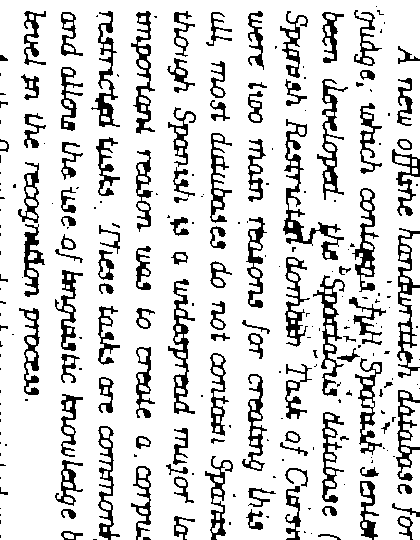 A new offline handwritten database for
which contains full Spanish
been developed: the Spartacus database (
Spanish Restricted-domain Task of Cursi
were two main reasons for creating this
all, most databases do not contain Spanis
though Spanish is a widespread major la
important reason was to create a corpus
restricted tasks. These tasks are common
and allow the use of linguistic knowledge b
level in the recognition process.